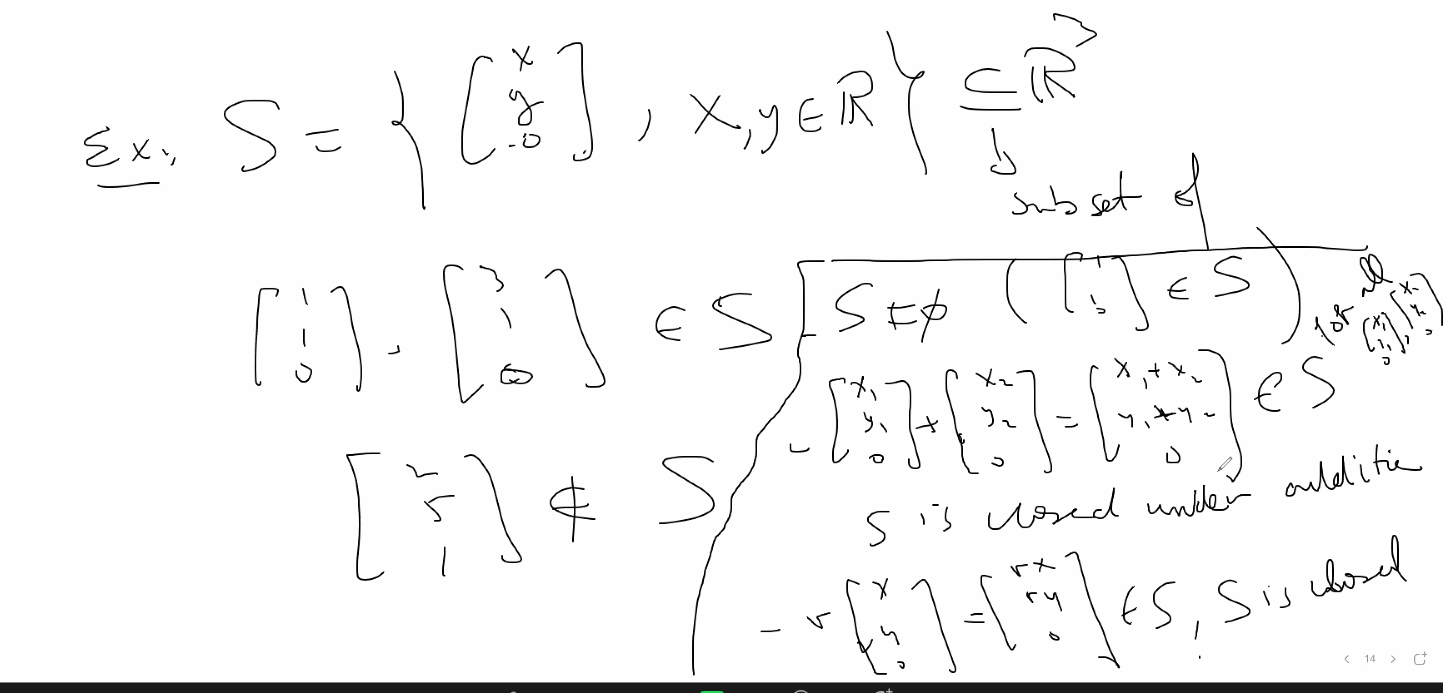 Ex. S = { [x y 0], x, y ∈ ℝ } ⊆ ℝ³
subset of
[1 1 0], [3 1 0] ∈ S
[2 5 1] ∉ S
- S ≠ ϕ ( ∈ S )
for all [x₁ y₁ 0], [x₂ y₂ 0]
- [x₁ y₁ 0] + [x₂ y₂ 0] = [x₁+x₂ y₁+y₂ 0] ∈ S
S is closed under additio
- r [x y 0] = [rx ry 0] ∈ S, S is closed
14